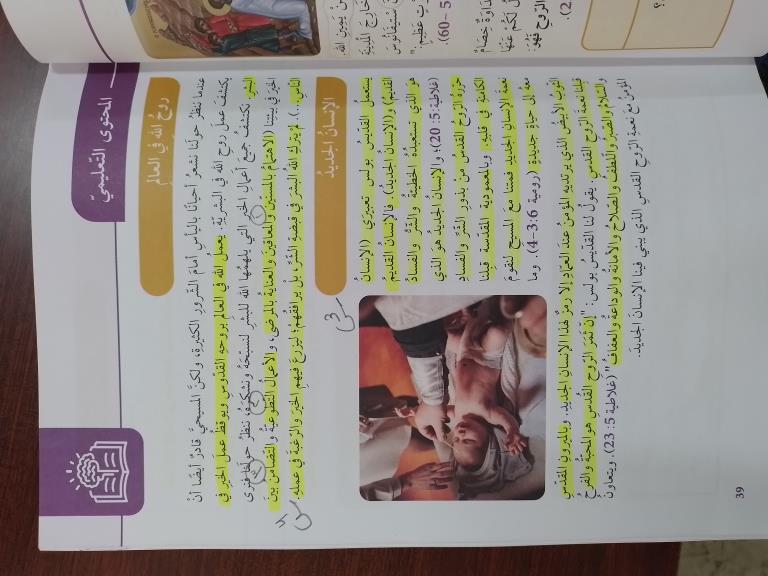 المحتوى التعليميّ
روحُ الله في العالم
عندما ننظرُ حولنا نشعرُ أحيانًا باليأسِ أمامَ الشرورِ الكثيرة، ولكنَّ المسيحيَّ قادرٌ أيضًا أنْ
يكتشفَ عملَ روحِ الله في البشريّة. يعملُ الله في العالمِ بروحهِ القدّوسِ ويوقظُ عملَ الخيرِ في
البشرِ. نكتشفُ جميعَ أعمالِ الخيرِ التي يلهمُها الله للبشرِ لنسبّحَهُ ونشكرَهُ، ننظرُ حولنا فنرى
الخيرَ في بيئتِنا (الاهتمامَ بالمسنّينَ والمعاقينَ والعنايةَ بالمرضى، والأعمالَ التطوعيّةَ والتضامنَ بينَ
الناسِ...). لم يتركِ اللهُ البشرَ في قبضةِ الشّرِّ، بل يرافقُهم؛ ليزرعَ فيهم الخيرَ والرّغبةَ في عملهِ
الإنسانُ الجديدُ
يستعملُ القدّيسُ بولس تعبيرَي (الإنسانُ
القديم) و(الإنسانُ الجديد)، فالإنسانُ القديمُ
هو الذي تستعبدُه الخطيئةُ والشّرُّ والفسادُ
(غلاطية 5: 20)؛ والإنسانُ الجديدُ هو الذي
حرّرهُ الروحُ القدسُ من بذورِ الشّرِّ والفسادِ
الكامنةِ في قلبهِ. وبالمعموديةِ المقدّسةِ قبلنا
نعمةَ الإنسانِ الجديدِ فمتنا مع المسيحِ لنقومَ
معهُ إلى حياةٍ جديدةٍ (رومية 6: 3-4). وما
الثوبُ الأبيضُ الذي يرتديهِ المؤمنُ عندَ العمادِ إلا رمزٌ لهذا الإنسانِ الجديدِ. وبالميرونِ المقدّسِ
قبلنا نعمةَ الروحِ القدسِ. يقولُ لنا القدّيسُ بولس: "إن ثمرَ الرّوحِ القدسِ هو المحبّةُ والفرحُ
والسّلامُ والصّبرُ واللطفُ والصّلاحُ والأمانةُ والوداعةُ والعفافُ" (غلاطية 5: 23). ويتعاونُ
المؤمنُ مع نعمةِ الرّوحِ القدسِ الذي يبني فينا الإنسانَ الجديدَ.
39